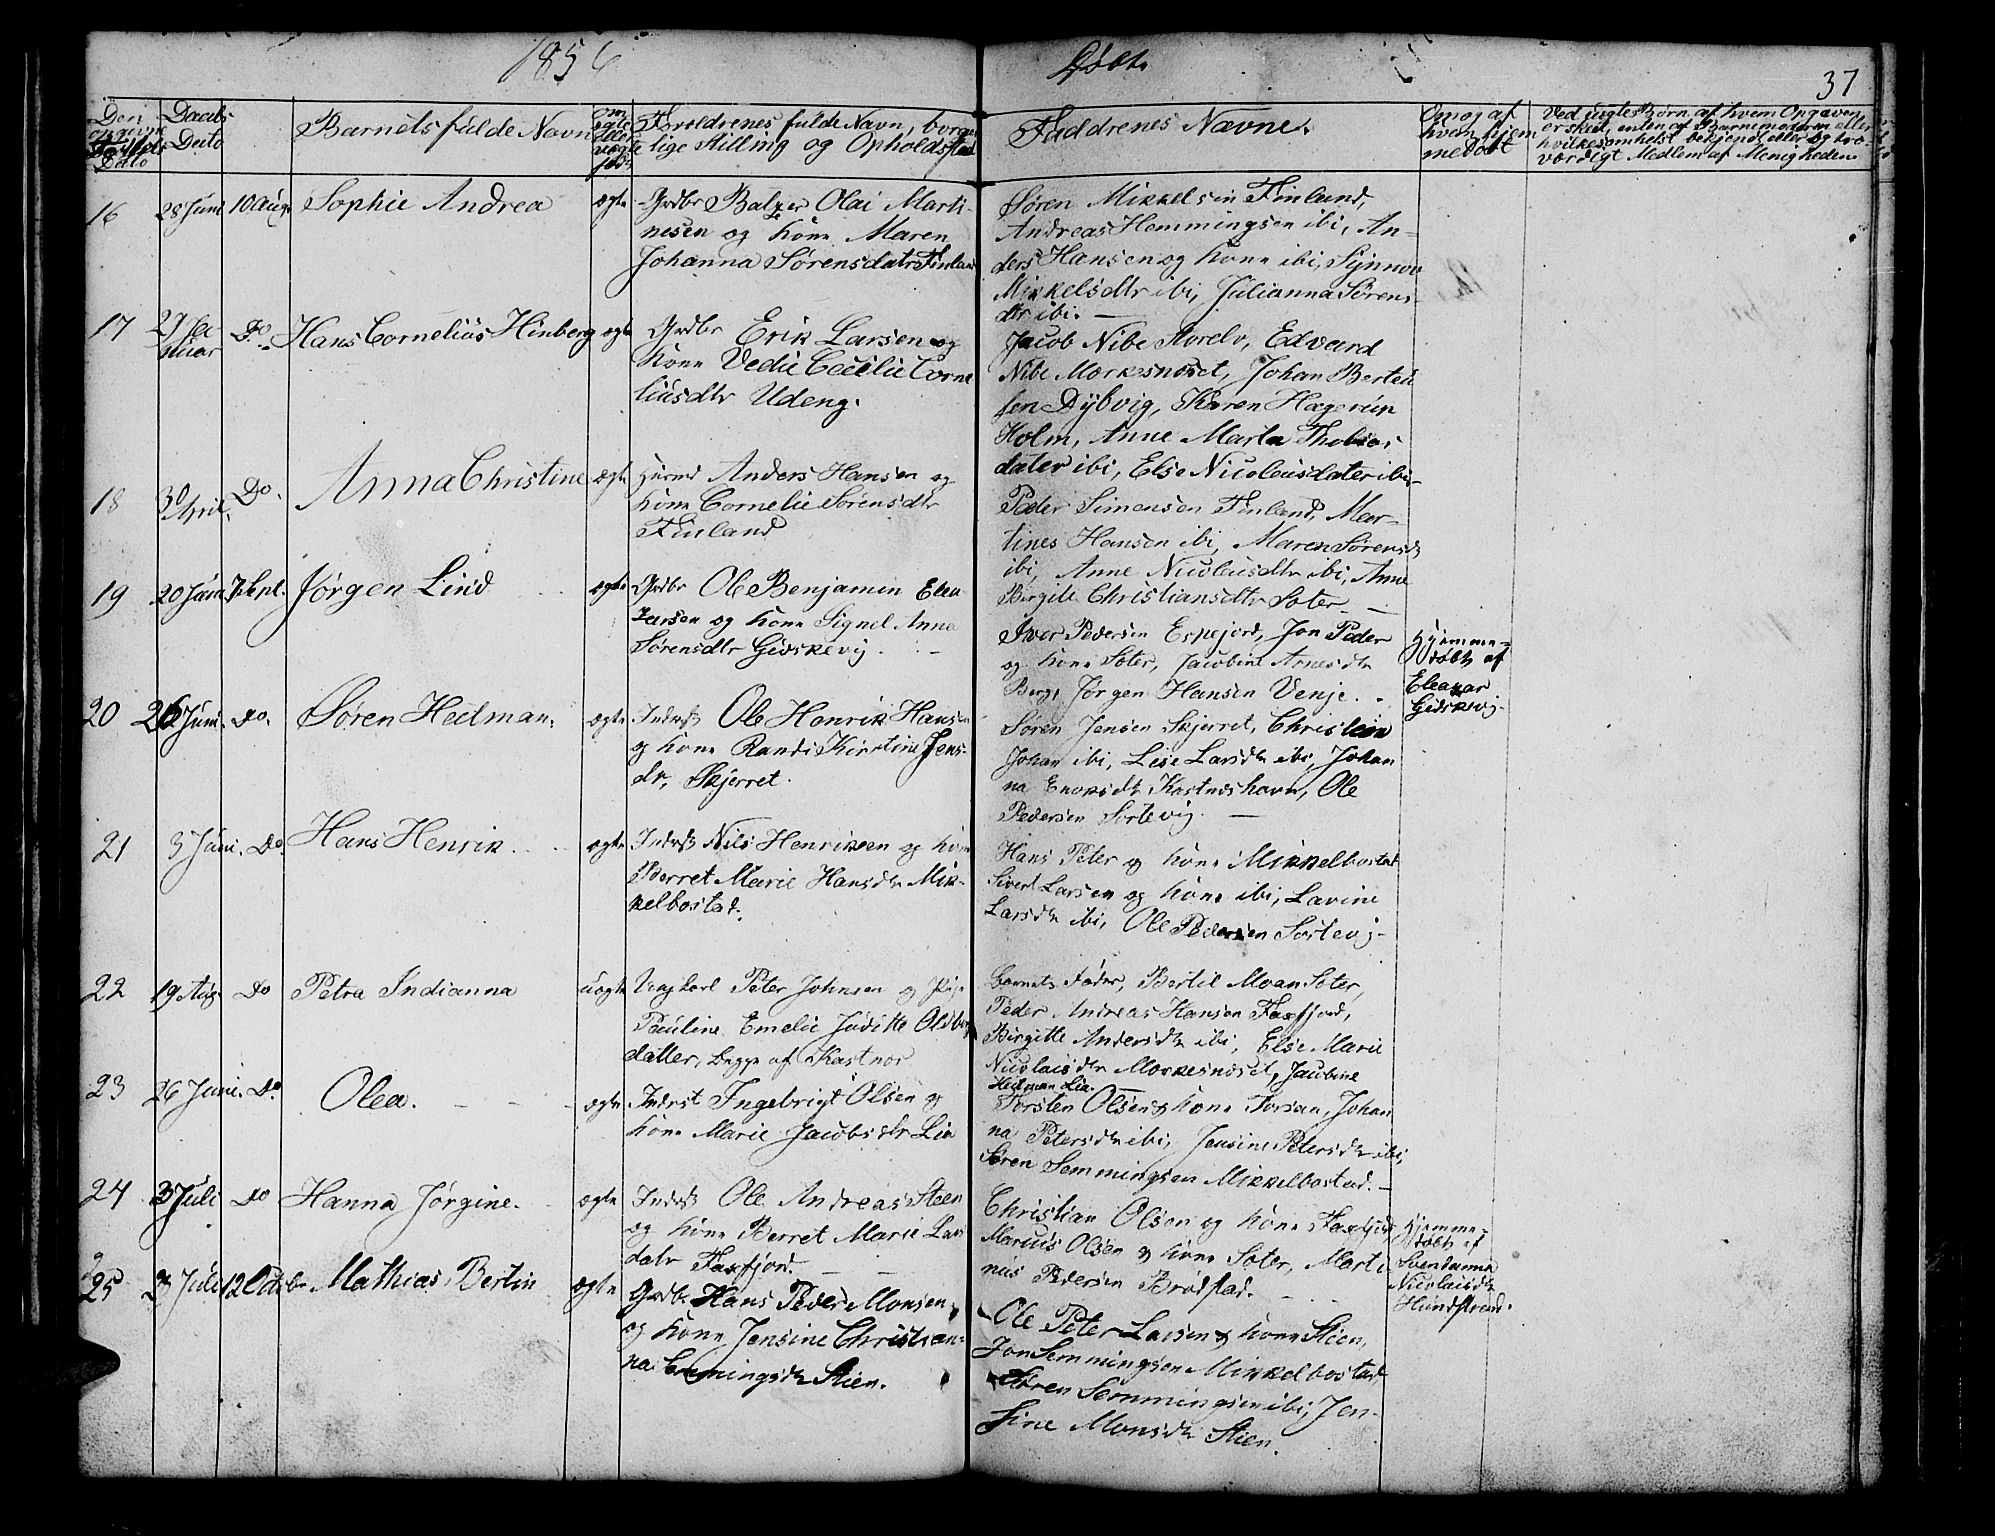 1856 Døbt. 37
Daabs Dato
Barnets fulde Navn
Forældrenes fulde Navn, borger
lige Stilling og Opholdssted
Faddrenes Nævne.
Om og af
hvem hjem
medøbt
Ved uægte Børn af hvem Opgaven
er skeet, enten af Barnemoderen eller
hvilkesomhelst bekjendt eller og tro
værdigt Medlem af Menigheden
16 28 Juni 10 Aug. Sophie Andrea ægte Grdbr Balzer Olai Marti-
nesen og Kone Maren
Johanna Sørensdatr Finland
Søren Mikkelsen Finland,
Andreas Hemmingsen ibi, An-
ders Hansen og Kone ibi, Synnov
Mikkelsdtr ibi, Julianna Sørens
dtr ibi. —
17 27 Januar Do. Hans Cornelius Hinberg ægte Grdbr Erik Larsen og
Kone Vedie Cecilie Corne
liusdtr Udeng.
Jacob Nibe Storelv, Edvard
Nibe Mærkesnæset, Johan Berteu
sen Dybvig, Karen Hagerup
Holm, Anne Marta Thobias
dater ibi, Else Nicolaisdater ibi
18 30 April. Do. Anna Christine ægte Huusmd Anders Hansen og
Kone Cornelie Sørensdtr
Finland
Peder Simonsen Finland, Mar-
tines Hansen ibi, Maren Sørensdtr
ibi, Anne Nicolaisdtr ibi, Anne
Birgite Christiansdtr Soter —
19 20 Juni 7 Sept. Jørgen Lind ægte Grdbr Ole Benjamin Elea
zarsen og Kone Signel Anna
Sørensdtr Gidskevig. —
Iver Pedersen Espejord, Jon Peder
og Kone Soter, Jacobine Arnesdtr
Berg, Jørgen Hansen Venje.
Hjemme-
døbt af
Eleazar
Gidskevig
20 26 Juni. Do. Søren Hedman. ægte Inderst Ole Henrik Hansen
og Kone Randi Kirstine Jens-
dr, Skjerret.
Søren Jensen Skjerret, Christian
Johan ibi, Lise Larsdtr ibi, Johan
na Enoksdtr Kastneshavn, Ole
Pedersen Sortevig. —
21 3 Juni. Do. Hans Henrik. ægte Inderst Nils Henriksen og Kone
Berret Marie Hansdtr Mik-
kelbostad.
Hans Peter og Kone Mikkelbostad
Sivert Larsen og Kone ibi, Lavine
Larsdtr ibi, Ole Pedersen Sortevig-
22 19 Aug. Do Petra Indianna uægte Ungkarl Peter Johnsen og Pige
Pauline Emelie Juditte Oldberg
datter, begge af Kastnes
Barnets Fader, Bertil Moan Soter,
Peder Andreas Hansen Faxfjord,
Birgitte Andersdtr ibi, Else Marie
Nicolaisdtr Mærkesnæset, Jacobine
Hedman Lia.
23 26 Juni. Do. Olea. — ægte Inderst Ingebrigt Olsen og
Kone Marie Jacobsdtr Lia
Torsten Olsen & Kone Forsan, Johan
na Petersdtr ibi, Jensine Petersdtr ibi,
Søren Semmingsen Mikkelbostad. —
24 3 Juli Do Hanna Jørgine. ægte Inderst Ole Andreas Steen
og Kone Berret Marie Lars
datr Faxfjord. —
Christian Olsen og Kone Faxfjord
Marius Olsen & Kone Soter, Marti
nus Pedersen Brødstad. —
Hjemme-
døbt af
Svendanna
Nicolaisdtr
Hundstrand.
25 Juli 12 Octobr Mathias Bertin ægte Grdbr Hans Peder Monsen
og Kone Jensine Christian-
na Semingsdtr Stien.
Ole Peter Larsen & Kone Stien,
Jon Semmingsen Mikkelbostad
Søren Semmingsen ibi, Jen-
sine Monsdtr Stien.